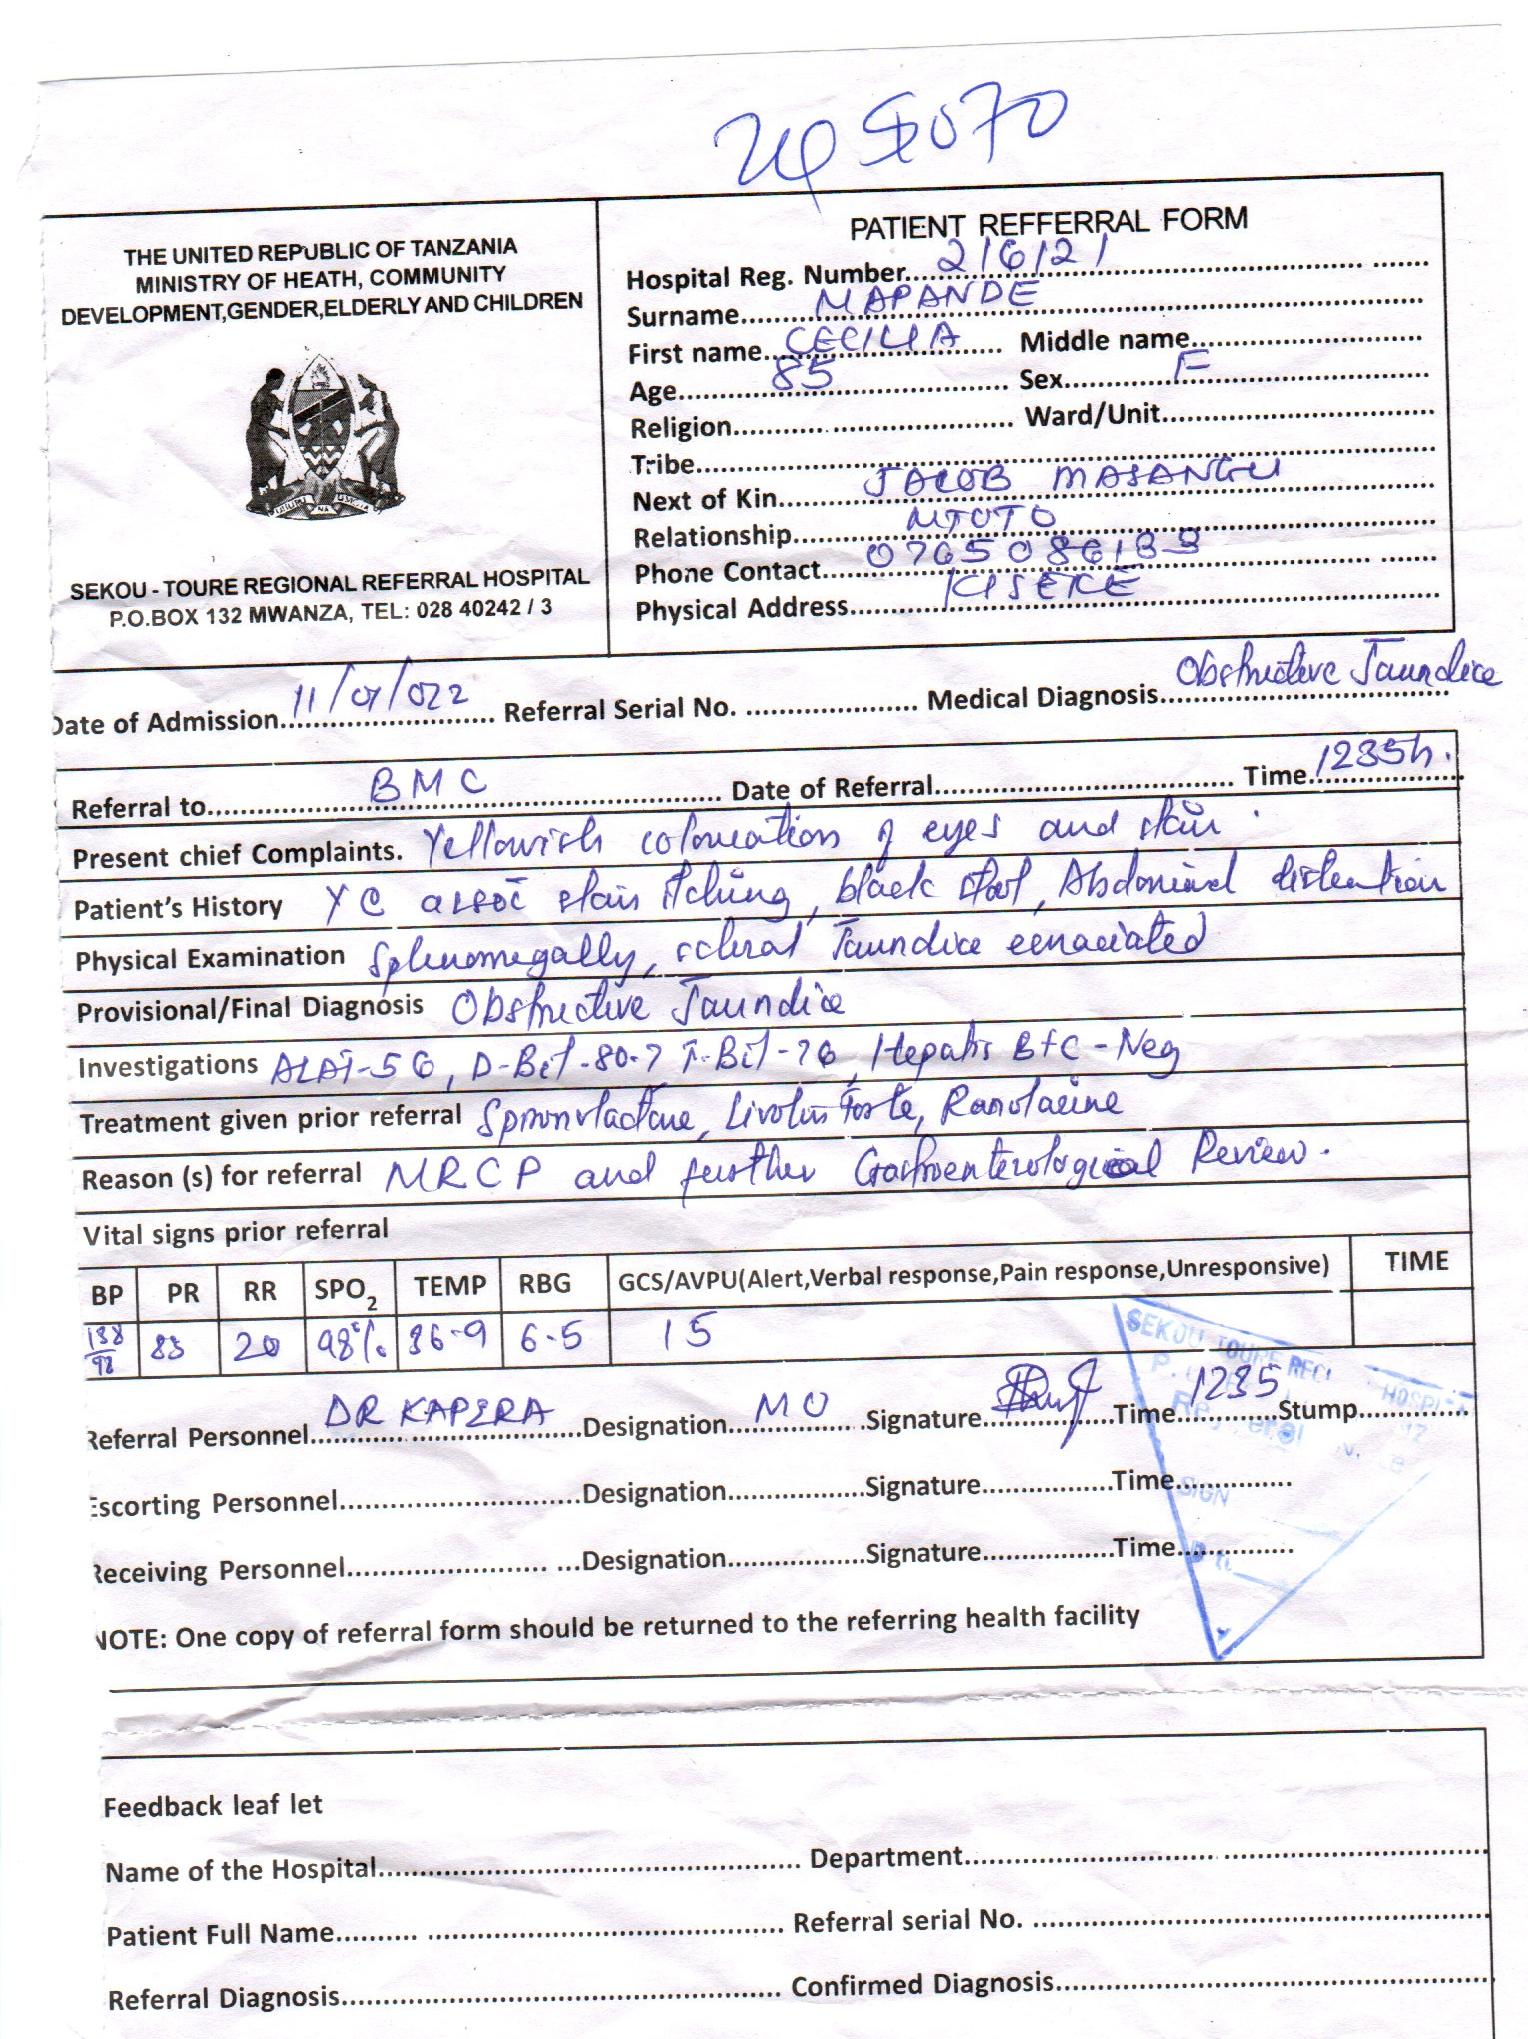 5070
THE UNITED REPUBLIC OF TANZANIA
MINISTRY OF HEATH, COMMUNITY
DEVELOPMENT,GENDER,ELDERLY AND CHILDREN
SEKOU - TOURE REGIONAL REFERRAL HOSPITAL
P.O.BOX 132 MWANZA, TEL: 028 40242 / 3
PATIENT REFFERRAL FORM
Hospital Reg. Number 216121
Surname MAPANDE
First name CECILIA Middle name
Age 85 Sex F
Religion Ward/Unit
Tribe
Next of Kin JACOB MASANGU
Relationship MTOTO
Phone Contact
Physical Address KISEKE
Date of Admission Referral Serial No. Medical Diagnosis Obstructive Jaundice
Referral to BMC Date of Referral Time 1235h.
Present chief Complaints. Yellowish colouration of eyes and skin.
Patient's History itching, black stool, Abdominal distention
Physical Examination Splenomegally, scleral Jaundice emaciated
Provisional/Final Diagnosis Obstructive Jaundice
Investigations ALAT-56, D-Bil-80.7 T-Bil-76, Hepatis B+C-Neg
Treatment given prior referral Livolin Forte,
Reason (s) for referral MRCP and further Gastroenterological Review.
Vital signs prior referral
BP PR RR SPO2 TEMP RBG GCS/AVPU(Alert,Verbal response,Pain response,Unresponsive) TIME
138/98 83 20 98% 36-9 6-5 15
Referral Personnel DR KAPERA Designation MO Signature Time 1235 Stump
Escorting Personnel Designation Signature Time
Receiving Personnel Designation Signature Time
SEKOU TOURE HOSPITAL
SIGN
NOTE: One copy of referral form should be returned to the referring health facility
Feedback leaf let
Name of the Hospital Department
Patient Full Name Referral serial No.
Referral Diagnosis Confirmed Diagnosis